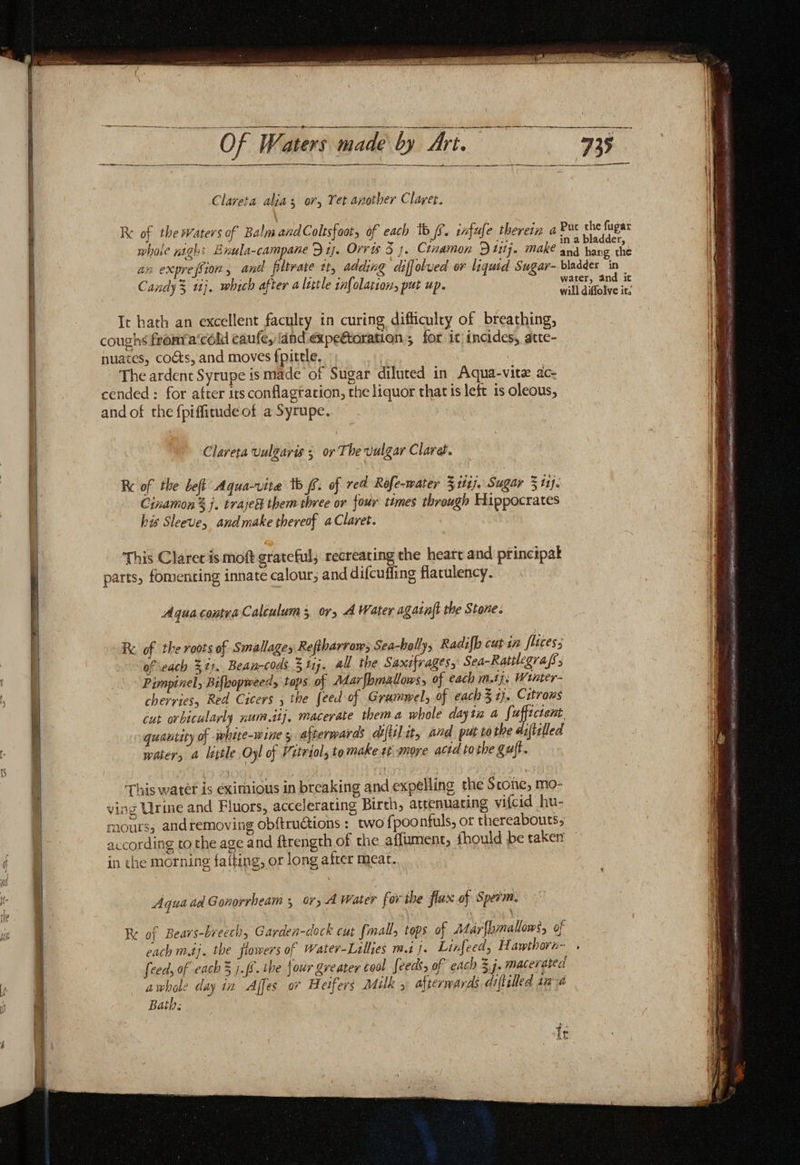 Of Waters made by Art. 735
Clareta alia; or, Yet another Claret.
℞ of the waters of Balm and Coltsfoot, of each ℔ ß. infuse therein a
whole night Enula-campane ℈ ij. Orris ʒ j. Cinamon ℈ iiij. make
an expression, and filtrate it, adding dissolved or liquid Sugar-
Candy ℥ iij. which after a little insolation, put up.
Put the sugar
in a bladder,
and hang the
bladder in
water, and it
will dissolve it.
It hath an excellent faculty in curing difficulty of breathing,
coughs from a cold cause, and expectoration; for it incides, atte-
nuates, cocts, and moves spittle.
The ardent Syrupe is made of Sugar diluted in Aqua-vitæ ac-
cended: for after its conflagration, the liquor that is left is oleous,
and of the spissitude of a Syrupe.
Clareta vulgaris; or The vulgar Claret.
℞ of the best Aqua-vitæ ℔ ß. of red Rose-water ℥ iiij. Sugar ℥ iij.
Cinamon ℥ j. traject them three or four times through Hippocrates
his Sleeve, and make thereof a Claret.
This Claret is most grateful, recreating the heart and principal
parts, fomenting innate calour, and discussing flatulency.
Aqua contra Calculum; or, A Water against the Stone.
℞ of the roots of Smallage, Restharrow, Sea-holly, Radish cut in slices,
of each ℥ ij. Bean-cods ℥ iij. all the Saxifrages, Sea-Rattlegrass,
Pimpinel, Bishopweed, tops of Marshmallows, of each m.ij. Winter-
cherries, Red Cicers, the seed of Grummel, of each ℥ ij. Citrons
cut orbicularly num.iij. macerate them a whole day in a sufficient
quantity of white-wine; afterwards distil it, and put to the distilled
water, a little Oyl of Vitriol, to make it more acid to the gust.
This water is eximious in breaking and expelling the Stone, mo-
ving Urine and Fluors, accelerating Birth, attenuating viscid hu-
mours, and removing obstructions: two spoonfuls, or thereabouts,
according to the age and strength of the assument, should be taken
in the morning fasting, or long after meat.
Aqua ad Gonorrheam; or, A Water for the flux of Sperm.
℞ of Bears-breech, Garden-dock cut small, tops of Marshmallows, of
each m.ij. the flowers of Water-Lillies m.i j. Linseed, Hawthorn-
seed, of each ℥ j.ß. the four greater cool seeds, of each ℥ j. macerated
a whole day in Asses or Heifers Milk; afterwards distilled in a
Bath.
It